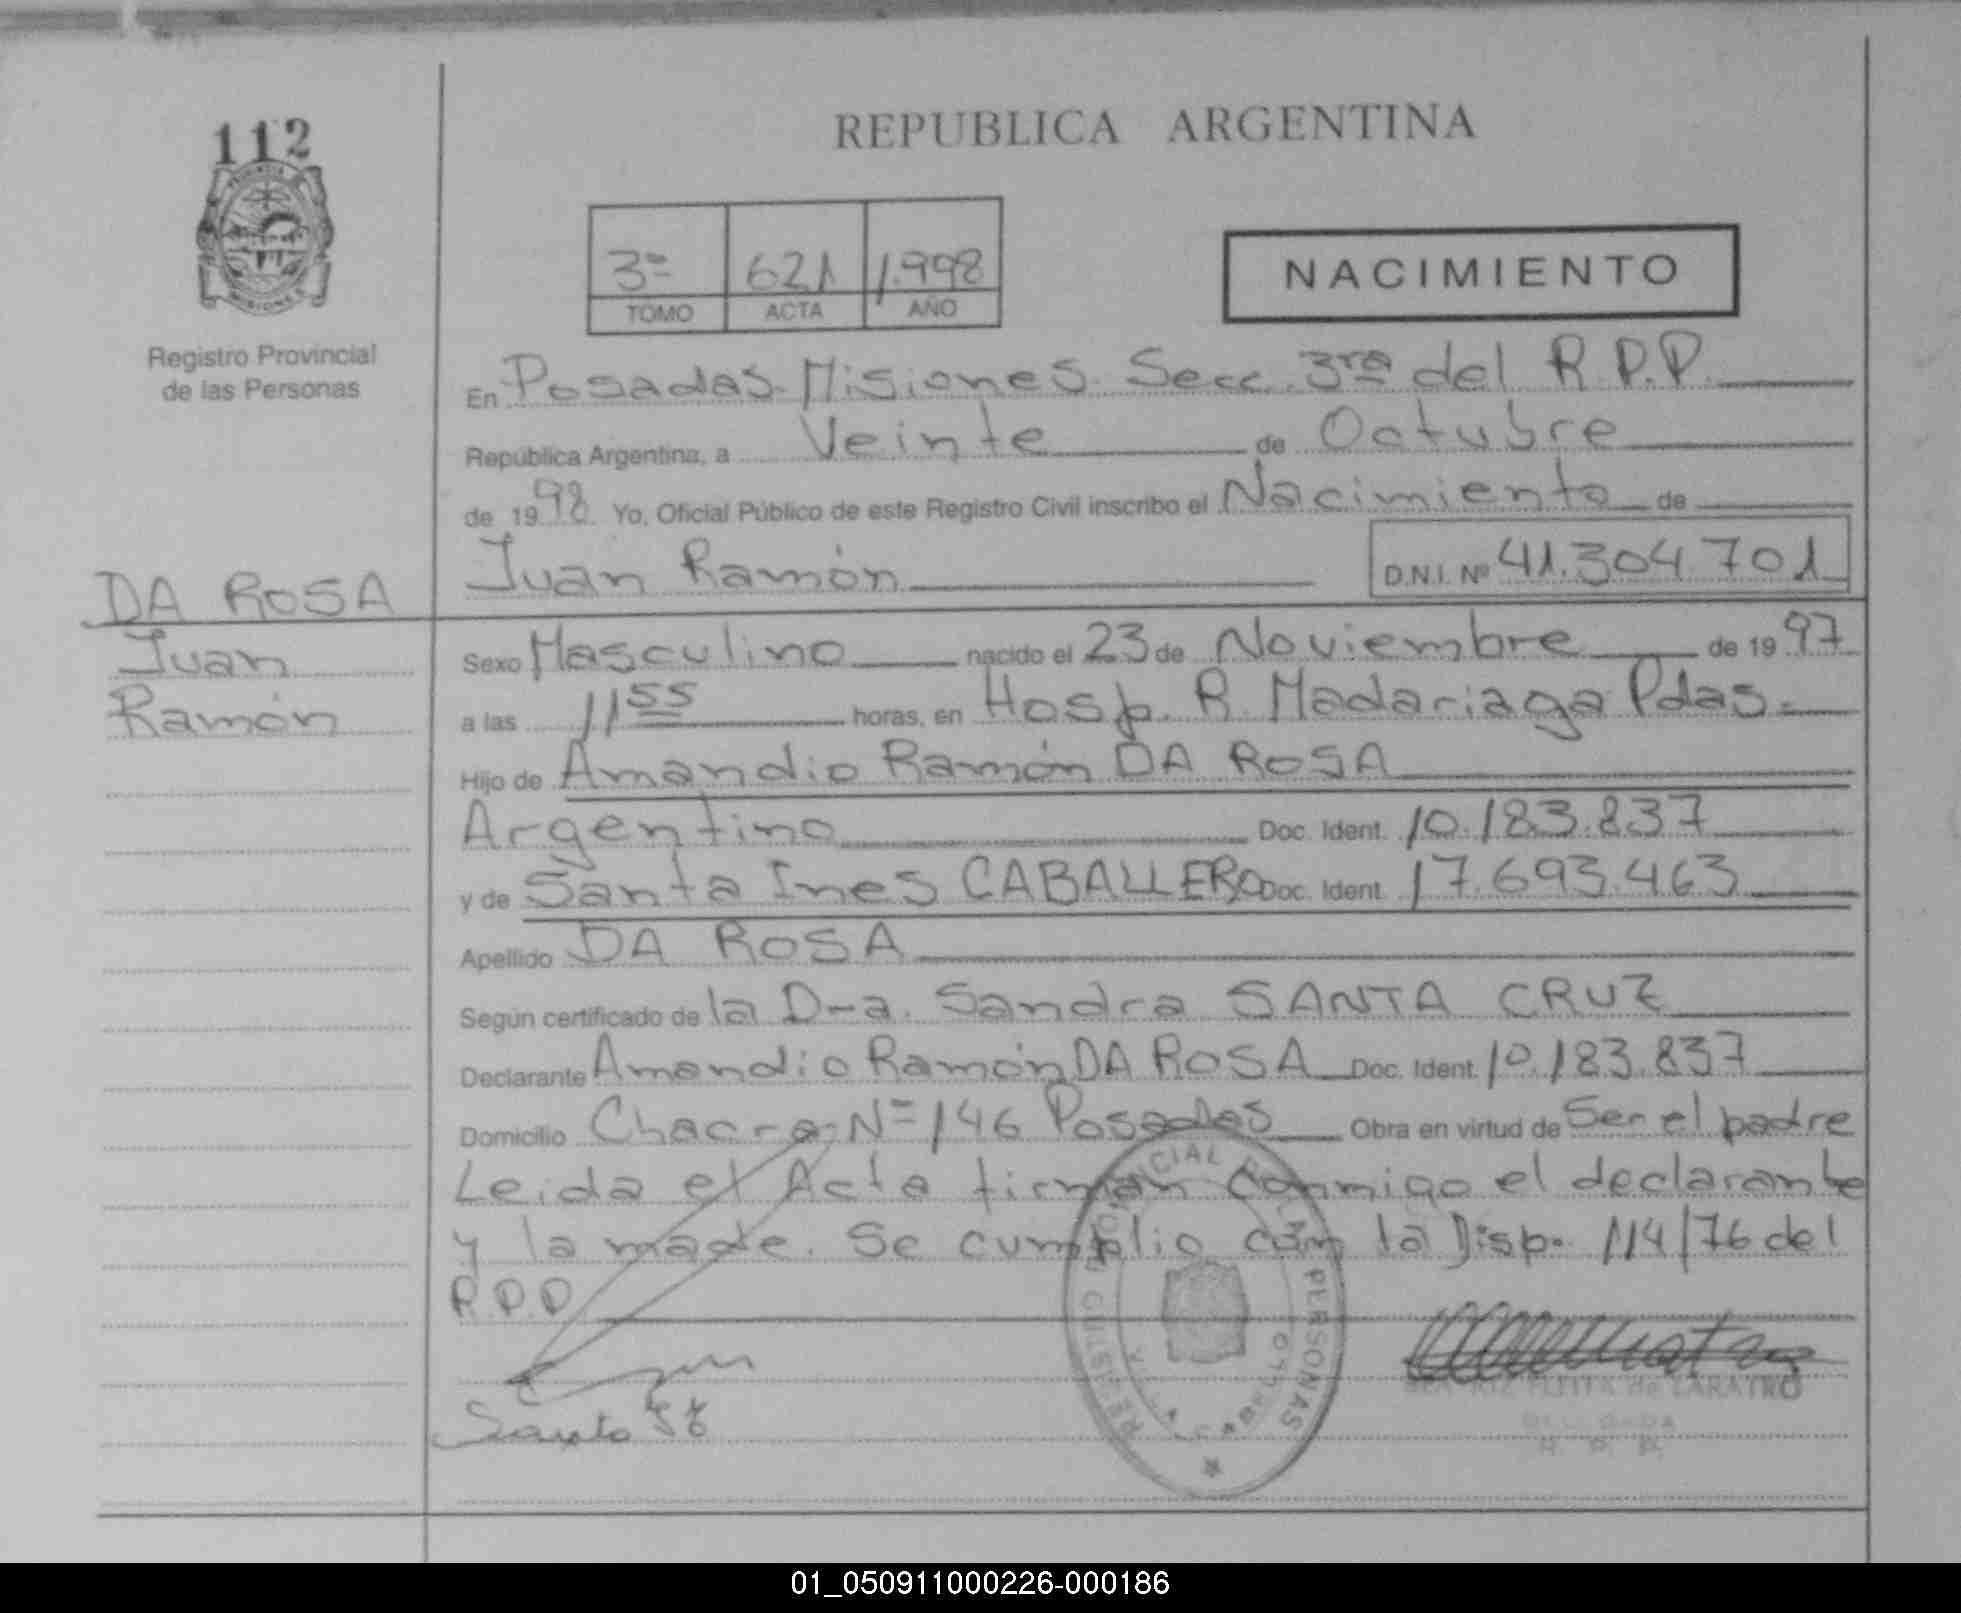 112
PROVINCIA
MISIONES
Registro Provincial
de las Personas
DA ROSA
Juan
Ramón
REPUBLICA ARGENTINA
3º 621 1.998
TOMO ACTA AÑO
NACIMIENTO
En Posadas. Misiones. Secc. 3ra del R.P.P.
República Argentina, a Veinte de Octubre
de 1998 Yo, Oficial Público de este Registro Civil inscribo el Nacimiento de
Juan Ramón D.N.I. Nº 41.304.701
Sexo Masculino nacido el 23 de Noviembre de 1997
a las 11 55 horas, en Hosp. R. Madariaga Pdas.
Hijo de Amandio Ramón DA ROSA
Argentino Doc. Ident. 10.183.837
y de Santa Ines CABALLERO Doc. Ident. 17.693.463
Apellido DA ROSA
Según certificado de la Dra. Sandra SANTA CRUZ
Declarante Amandio Ramón DA ROSA Doc. Ident. 10.183.837
Domicilio Chacra Nº 146 Posadas Obra en virtud de Ser el padre
Leida el Acta firman conmigo el declarante
y la made. Se cumplio con la Disp. 114/76 del
R.P.P
REGISTRO PROVINCIAL DE LAS PERSONAS
BEATRIZ FLEITA de LARATRO
DELEGADA
R. P. P.
01_050911000226-000186